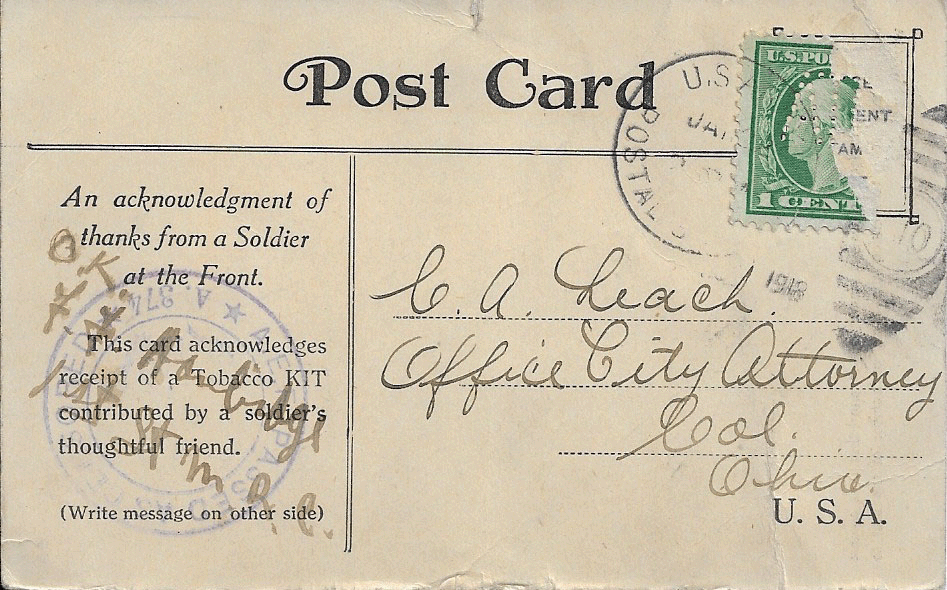 Post Card
U.S.
POSTAL
JAN
1918
10
U.S.PO
1 CENT
An acknowledgment of
thanks from a Soldier
at the Front.
This card acknowledges
receipt of a Tobacco KIT
contributed by a soldier's
thoughtful friend.
(Write message on other side)
O.K.
PASSED
A.974
C. A. Leach
Office City Attorney
Col.
Ohio.
U. S. A.